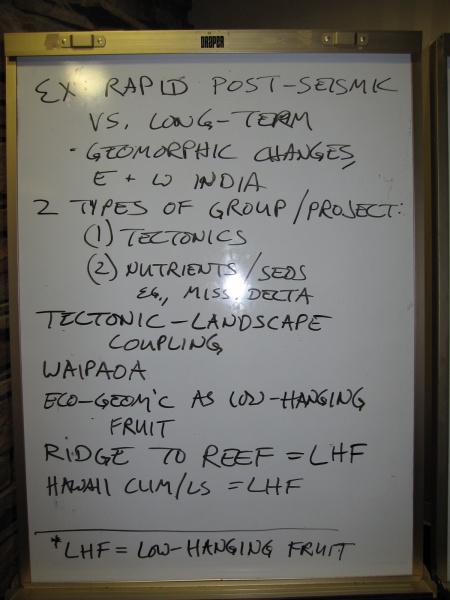 DRAPER
EX RAPID POST-SEISMIC
VS. LONG-TERM
· GEOMORPHIC CHANGES,
E + W INDIA
2 TYPES OF GROUP/PROJECT:
(1) TECTONICS
(2) NUTRIENTS/SEDS
EG., MISS. DELTA
TECTONIC-LANDSCAPE
COUPLING
WAIPAOA
ECO-GEOM'C AS LOW-HANGING
FRUIT
RIDGE TO REEF = LHF
HAWAII CLIM/LS = LHF
*LHF = LOW-HANGING FRUIT